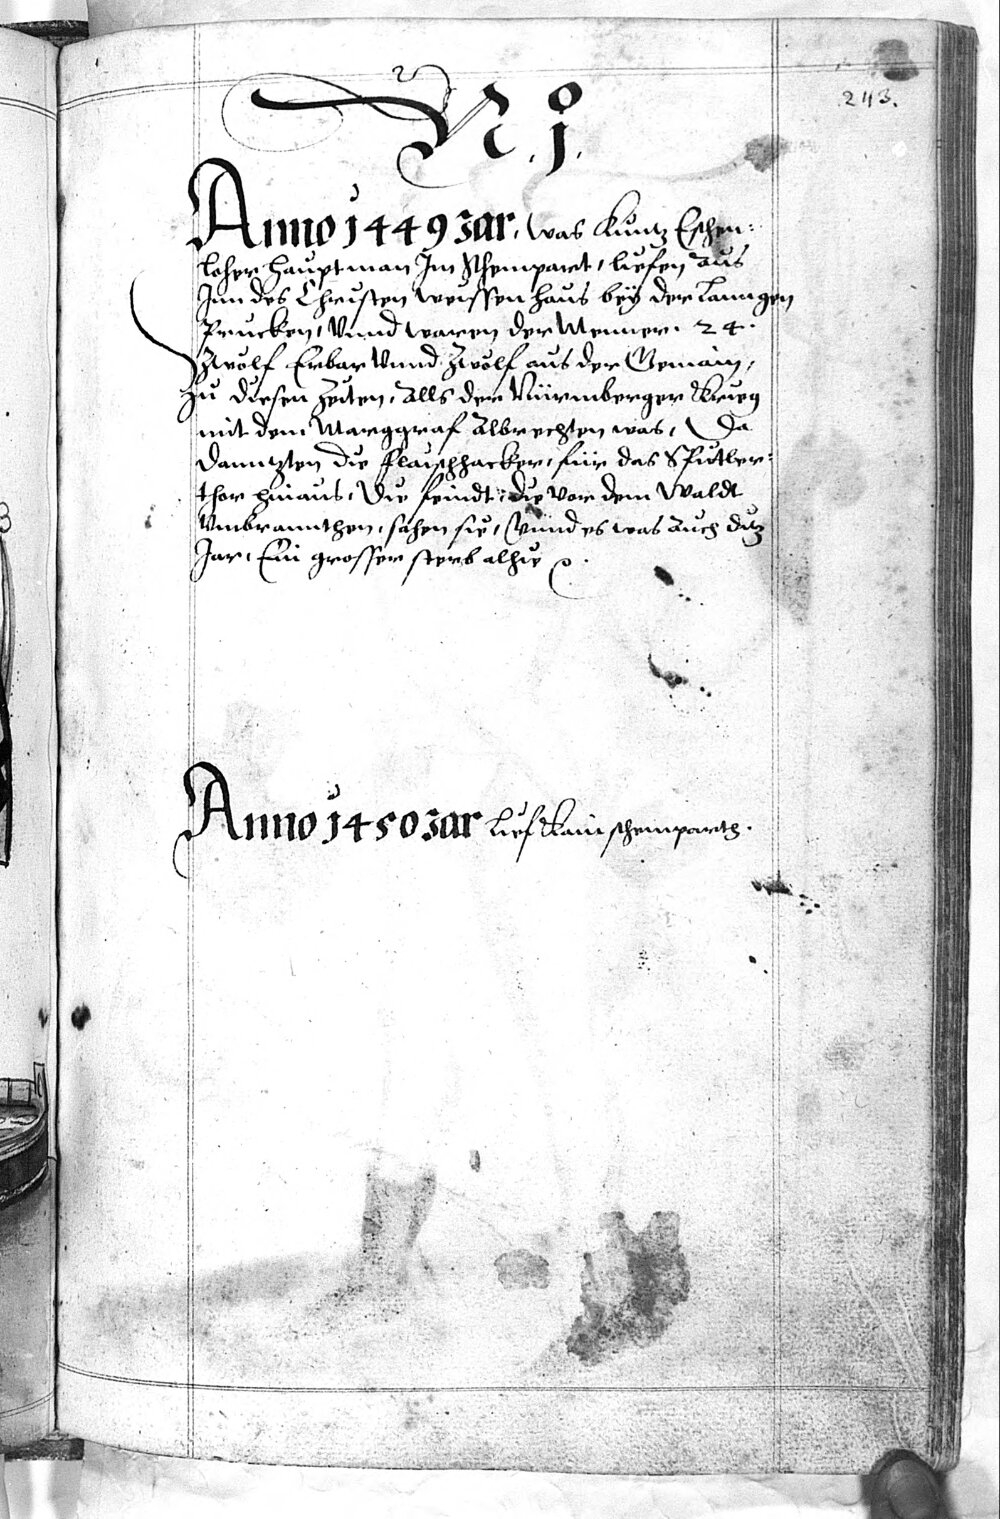 243.
N. j.
Anno 1449 Jar, was Kuntz Eschen-
loher Hauptman Im Schempart, liefen aus
Inn des Christen weissen haus bey der Lanngen
Prucken, Vnnd waren der Menner. 24.
Zwölf Erbar Vnnd Zwölf aus der Gemain,
Zu diesen Zeiten, Alls der Nürmberger Krieg
mit dem Marggraf Albrechten was, Da
danntzten die Flaischhacker, für das Spitler-
thor hinaus, Die feindt, die vor dem Waldt
Vmbrannthen, sahen sie, Vnnd es was auch ditz
Jar, Ein grosser sterb alhie
Anno 1450 Jar lief kain schemparth.